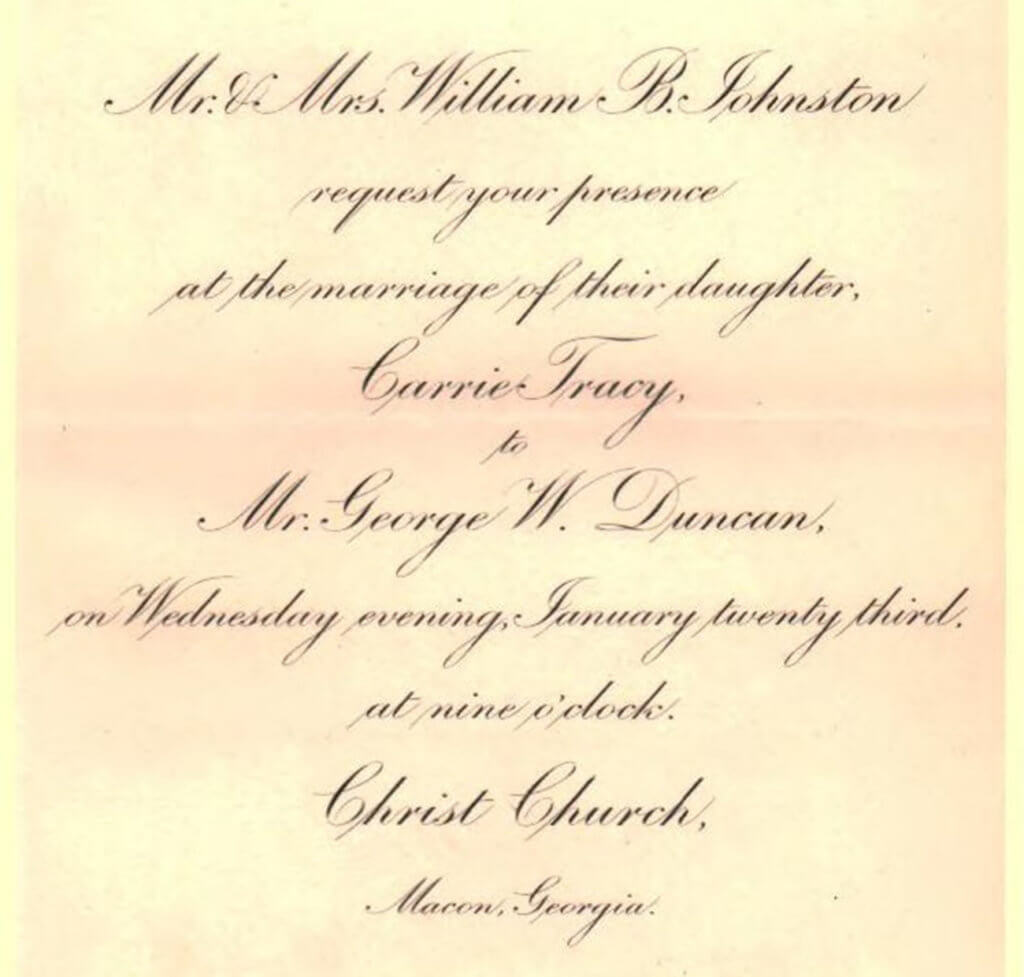 Mr. & Mrs. William B. Johnston
request your presence
at the marriage of their daughter,
Carrie Tracy,
to
Mr. George W. Duncan,
on Wednesday evening, January twenty third.
at nine o'clock.
Christ Church,
Macon, Georgia.